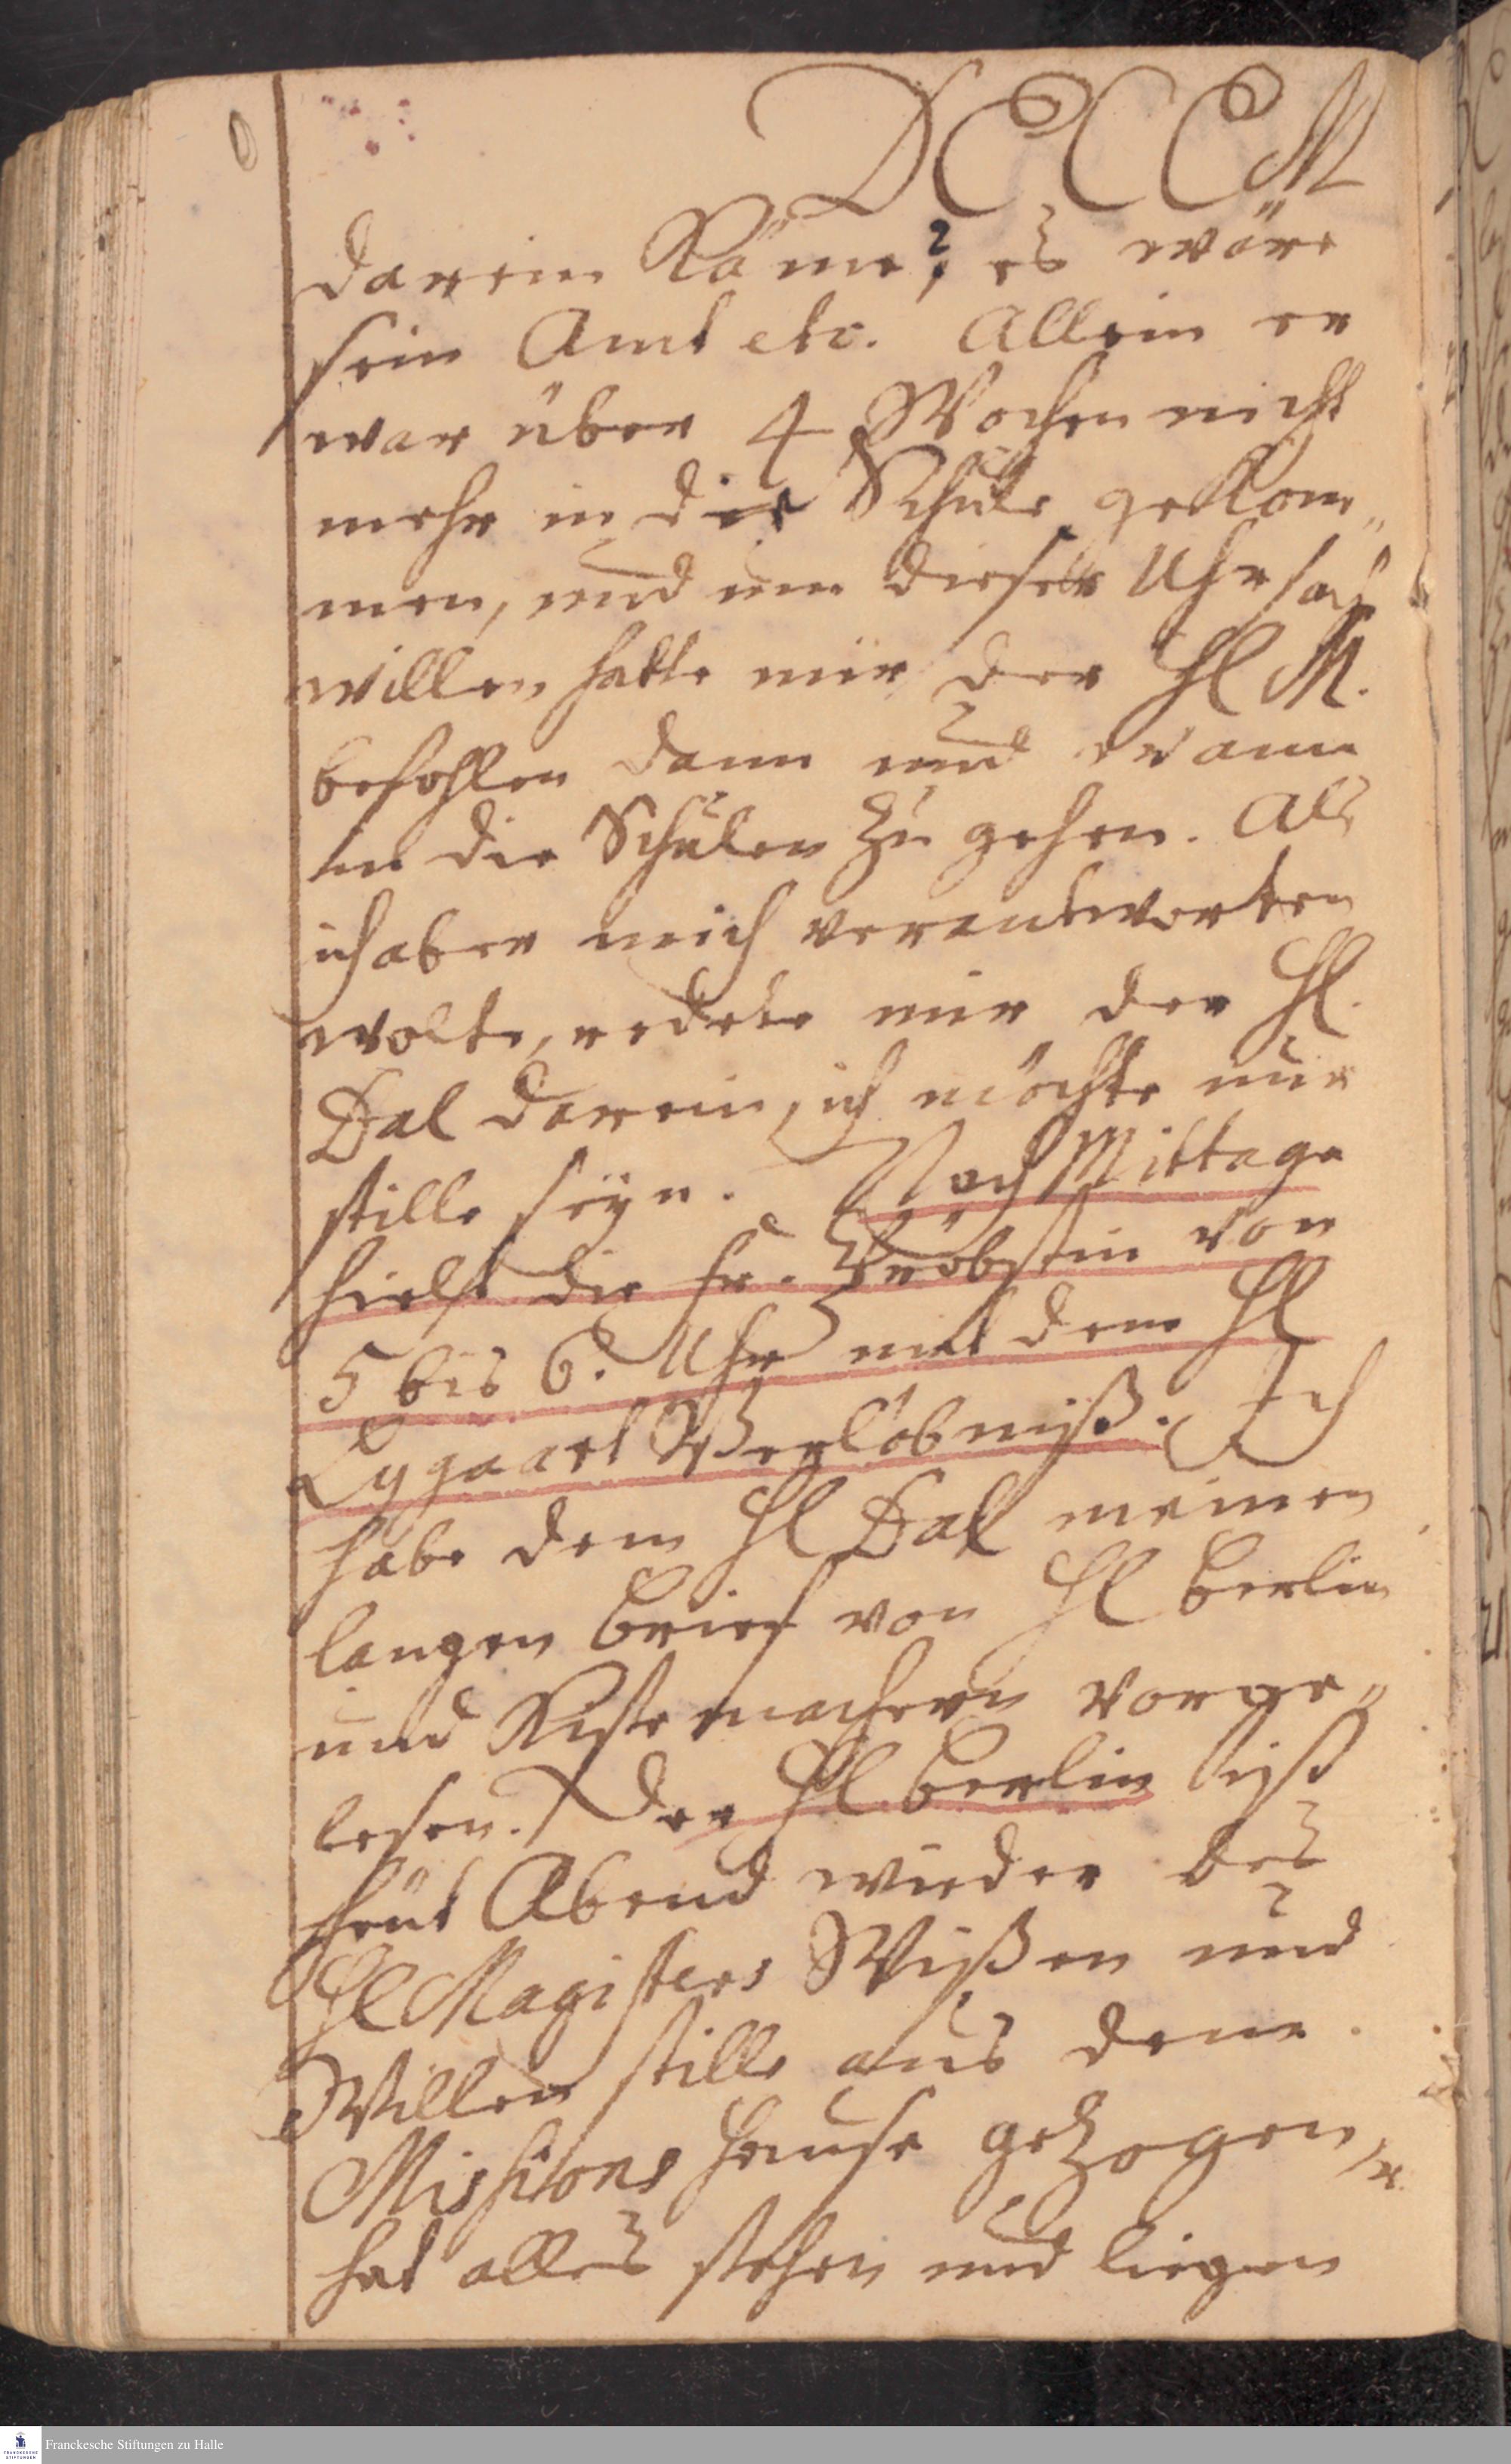 DCCCM
darein käme? es wäre
sein Amt etc. Allein er
war über 4 Wochen nicht
mehr in die Schule gekom„
men, und um dieser Uhrsach
willen hatte mir der Hl M.
befohlen dann und wann
in die Schulen zu gehen. Als
ich aber mich verantworten
wolte, redete mir der Hl.
Dal darein, ich möchte nur
stille seyn. Nach Mittage
hielt die Fr. Pröbstin von
5 bis 6. Uhr mit dem Hl
Lygaart Verlöbniß. Ich
habe dem Hl Dal meinen
langen Brief von Hl Berlin
und Kistemachern vorge„
lesen. Der Hl. Berlin ist
heut Abend wieder des
Hl Magisters Wißen und
Willen stille aus dem
Missions Hause gezogen,
hat alles stehen und liegen
Franckesche Stiftungen zu Halle